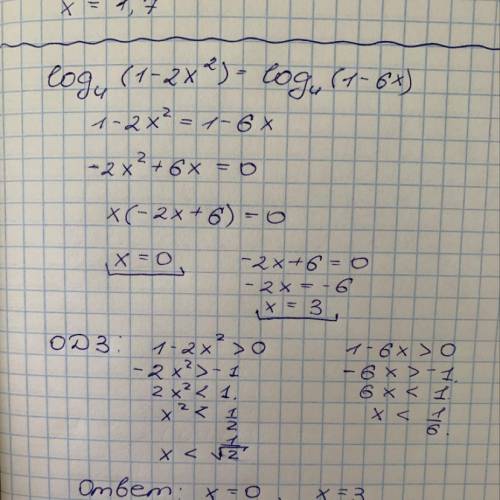 x = 1,7
log₄ (1-2x²) = log₄ (1-6x)
1-2x² = 1-6x
-2x²+6x = 0
x(-2x+6) = 0
x = 0
-2x+6 = 0
-2x = -6
x = 3
ОДЗ: 1-2x² > 0
-2x² > -1
2x² < 1.
x² < 1/2
x < 1/√2
1-6x > 0
-6x > -1.
6x < 1
x < 1/6.
Ответ: x=0, x=3